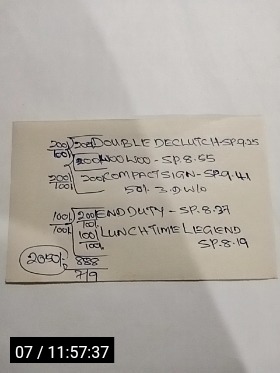 200/100 200 DOUBLE DECLUTCH-SP.9.25
200 WOO WOO - SP.8.55
200/100 200 COMPACT SIGN-SP.9.41
50/- 3.D W/O
100/100 200/100 END DUTY - SP.8.37
100/100 LUNCHTIME LEGEND
SP.8.19
2050/-
888
719
07 / 11:57:37